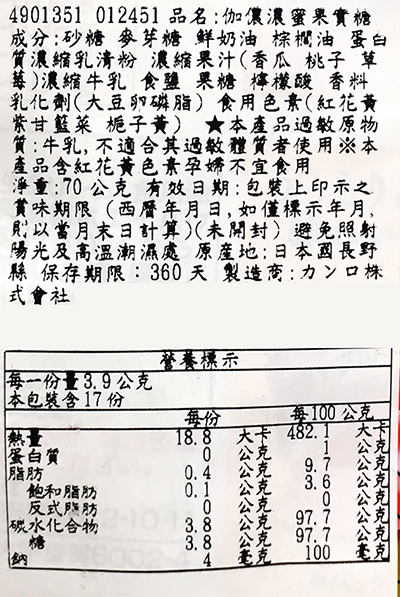 4901351 012451 品名:伽儂濃蜜果實糖
成分:砂糖 麥芽糖 鮮奶油 棕櫚油 蛋白
質濃縮乳清粉 濃縮果汁(香瓜 桃子 草
莓)濃縮牛乳 食鹽 果糖 檸檬酸 香料
乳化劑(大豆卵磷脂) 食用色素(紅花黃
紫甘藍菜 梔子黃) ★本產品過敏原物
質:牛乳,不適合其過敏體質者使用※本
產品含紅花黃色素孕婦不宜食用
淨重:70公克 有效日期:包裝上印示之
賞味期限 (西曆年月日,如僅標示年月,
則以當月末日計算)(未開封) 避免照射
陽光及高溫潮濕處 原產地:日本國長野
縣 保存期限:360天 製造商:カンロ株
式會社
營養標示
每一份量3.9公克
本包裝含17份
每份 每100公克
熱量 18.8 大卡 482.1 大卡
蛋白質 0 公克 1 公克
脂肪 0.4 公克 9.7 公克
飽和脂肪 0.1 公克 3.6 公克
反式脂肪 0 公克 0 公克
碳水化合物 3.8 公克 97.7 公克
糖 3.8 公克 97.7 公克
鈉 4 毫克 100 毫克